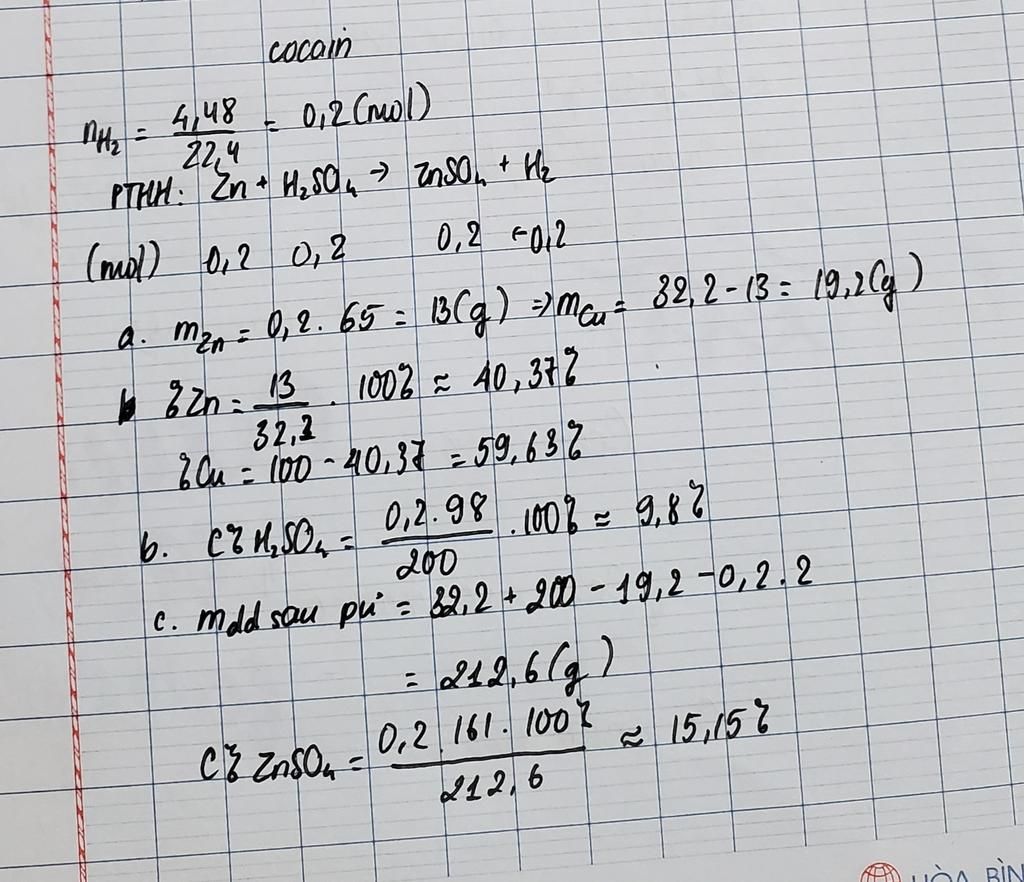 cocain
nH₂ = 4,48/22,4 = 0,2 (mol)
PTHH: Zn + H₂SO₄ → ZnSO₄ + H₂
(mol) 0,2 0,2 0,2 ←0,2
a. mZn = 0,2. 65 = 13(g) ⇒ mCu = 32,2 - 13 = 19,2(g)
%Zn = 13/32,2 . 100% ≈ 40,37%
%Cu = 100 - 40,37 = 59,63%
b. C% H₂SO₄ = 0,2.98/200 .100% ≈ 9,8%
c. mdd sau pư = 32,2 + 200 - 19,2 - 0,2.2
= 212,6(g)
C% ZnSO₄ = 0,2 161. 100%/212,6 ≈ 15,15%
HÒA BÌN